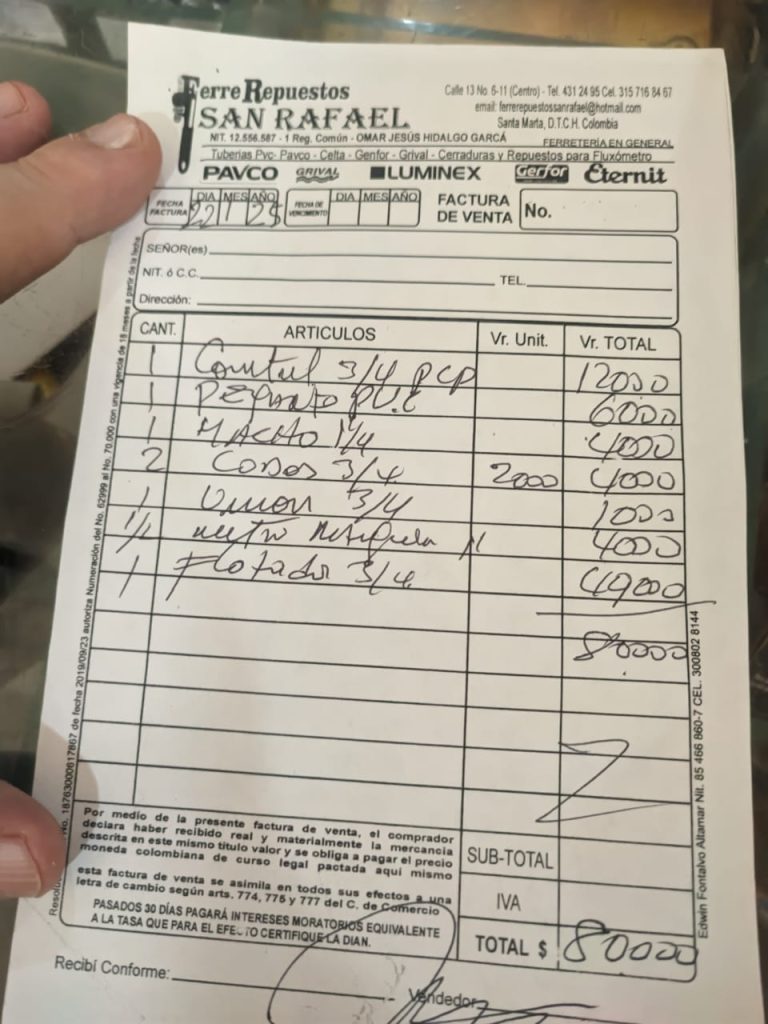 Ferre Repuestos
SAN RAFAEL
NIT. 12.556.587 - 1 Reg. Común - OMAR JESÚS HIDALGO GARCÁ
Calle 13 No. 6-11 (Centro) - Tel. 431 24 95 Cel. 315 716 84 67
email: ferrerepuestossanrafael@hotmail.com
Santa Marta, D.T.C.H. Colombia
FERRETERÍA EN GENERAL
Tuberias Pvc- Pavco - Celta - Genfor - Grival - Cerraduras y Repuestos para Fluxómetro
PAVCO GRIVAL LUMINEX Gerfor Eternit
FECHA FACTURA DIA MES AÑO 22 1 25
FECHA DE VENCIMIENTO DIA MES AÑO
FACTURA DE VENTA No.
SEÑOR(es)
NIT. ó C.C. TEL.
Dirección:
CANT. ARTICULOS Vr. Unit. Vr. TOTAL
1 3/4 PCP 12000
1 PEGANTE PVC 6000
1 MACHO 4000
2 CODOS 3/4 2000 4000
1 Union 3/4 1000
1/2 metro 4000
1 Flotador 3/4 49000
80000
Por medio de la presente factura de venta, el comprador
declara haber recibido real y materialmente la mercancia
descrita en este mismo titulo valor y se obliga a pagar el precio
moneda colombiana de curso legal pactada aqui mismo
esta factura de venta se asimila en todos sus efectos a una
letra de cambio según arts. 774, 775 y 777 del C. de Comercio
PASADOS 30 DÍAS PAGARÁ INTERESES MORATORIOS EQUIVALENTE
A LA TASA QUE PARA EL EFECTO CERTIFIQUE LA DIAN.
SUB-TOTAL
IVA
TOTAL $ 80000
Recibí Conforme: Vendedor
No. 18763000617867 de fecha 2019/09/23 autoriza Numeración del No. 62999 al No. 70.000 con una vigencia de 18 meses a partir de la fecha
Edwin Fontalvo Altamar Nit. 85 466 860-7 CEL. 300802 8144